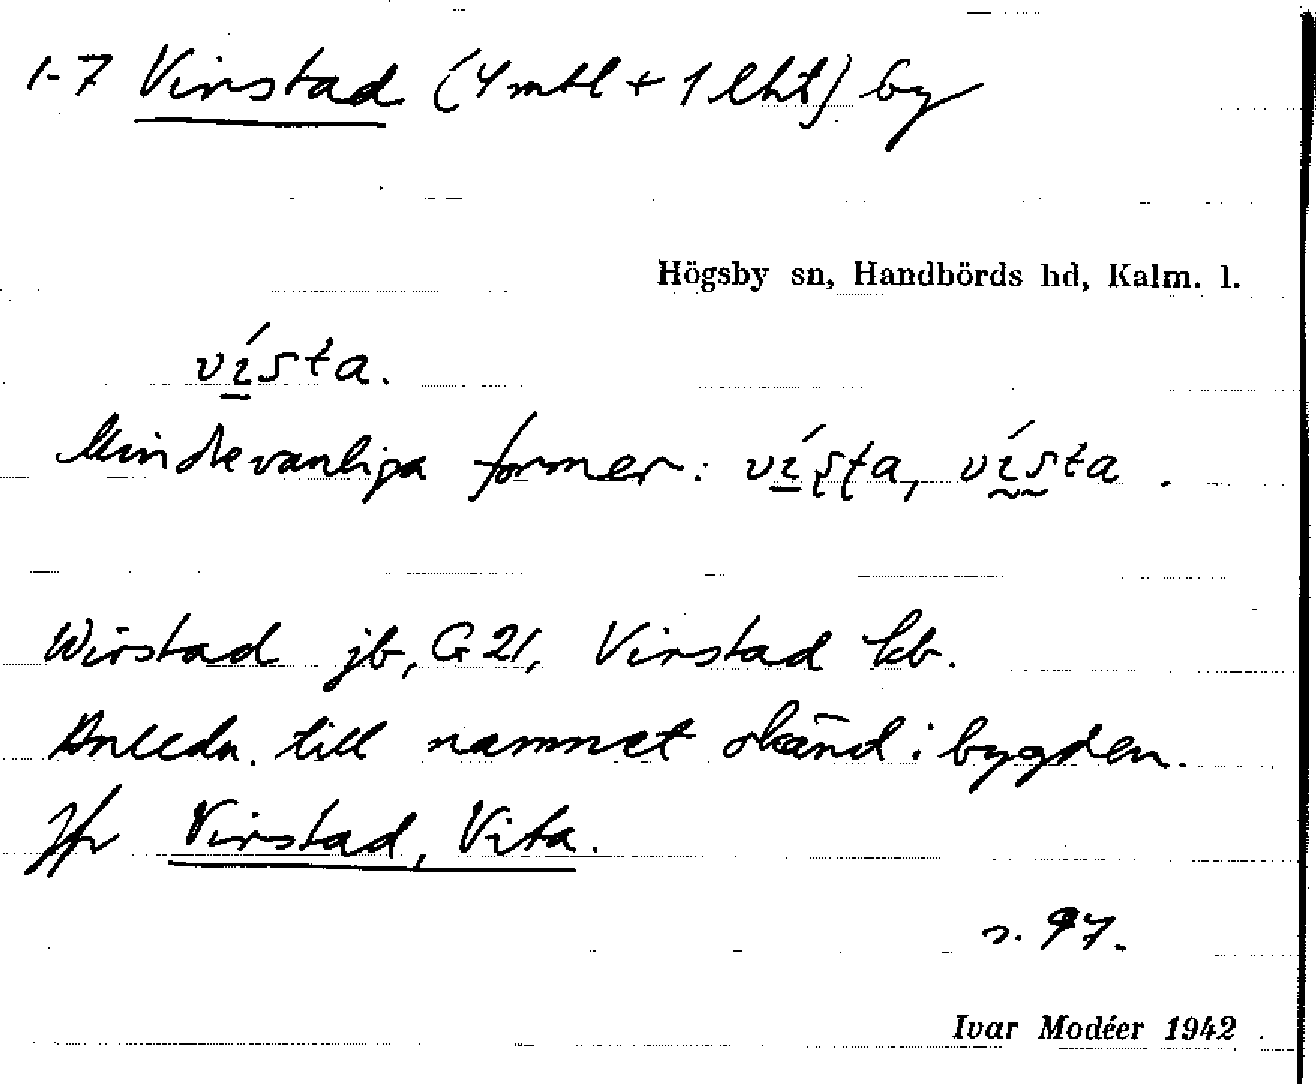 1-7 Virstad (4 mtl + 1 lht) by
Högsby sn, Handbörds hd, Kalm. l.
vísta.
Mindre vanliga former: vísta, vísta.
Wirstad jb, G 21, Virstad kb.
Anledn. till namnet okänd i bygden.
Jfr Virstad, Vita.
s. 97.
Ivar Modéer 1942